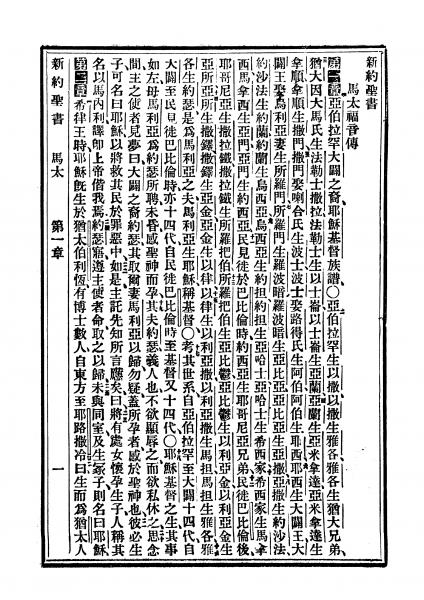 新約聖書
馬太福音傳
第一章亞伯拉罕大闢之裔耶穌基督族譜〇亞伯拉罕生以撒以撒生雅各雅各生猶大兄弟
猶大因大馬氏生法勒士撒拉法勒士生以士崙以士崙生亞蘭亞蘭生亞米拿達亞米拿達生
拿順拿順生撒門撒門娶喇合氏生波士波士娶路得氏生阿伯阿伯生耶西耶西生大闢王大
闢王娶烏利亞妻生所羅門所羅門生羅波暗羅波暗生亞比亞亞比亞生亞撒亞撒生約沙法
約沙法生約蘭約蘭生烏西亞烏西亞生約担約担生亞哈士亞哈士生希西家希西家生馬拿
西馬拿西生亞門亞門生約西亞民見徙於巴比倫時約西亞生耶哥尼亞兄弟民徙巴比倫後
耶哥尼亞生撒拉鐵撒拉鐵生所羅把伯所羅把伯生亞比鬱亞比鬱生以利亞金以利亞金生
亞所亞所生撒鐸撒鐸生亞金亞金生以律以律生以利亞撒以利亞撒生馬担馬担生雅各雅
各生約瑟是爲馬利亞之夫馬利亞生耶穌稱基督〇考其世系自亞伯拉罕至大闢十四代自
大闢至民見徙巴比倫時亦十四代自民徙巴比倫時至基督又十四代〇耶穌基督之生其事
如左母馬利亞爲約瑟所聘未昏感聖神而孕其夫約瑟義人也不欲顯辱之而欲私休之思念
間主之使者見夢曰大闢之裔約瑟其取爾妻馬利亞以歸勿疑蓋所孕者感於聖神也彼必生
子可名曰耶穌以將救其民於罪惡中如是主託先知所言應矣曰將有處女懷孕生子人稱其
名以馬內利譯即上帝偕我焉約瑟寤遵主使者命取之以歸未與同室及生冢子則名曰耶穌
第二章希律王時耶穌既生於猶太伯利恆有博士數人自東方至耶路撒冷曰生而爲猶太人
新約聖書 馬太 第一章 一